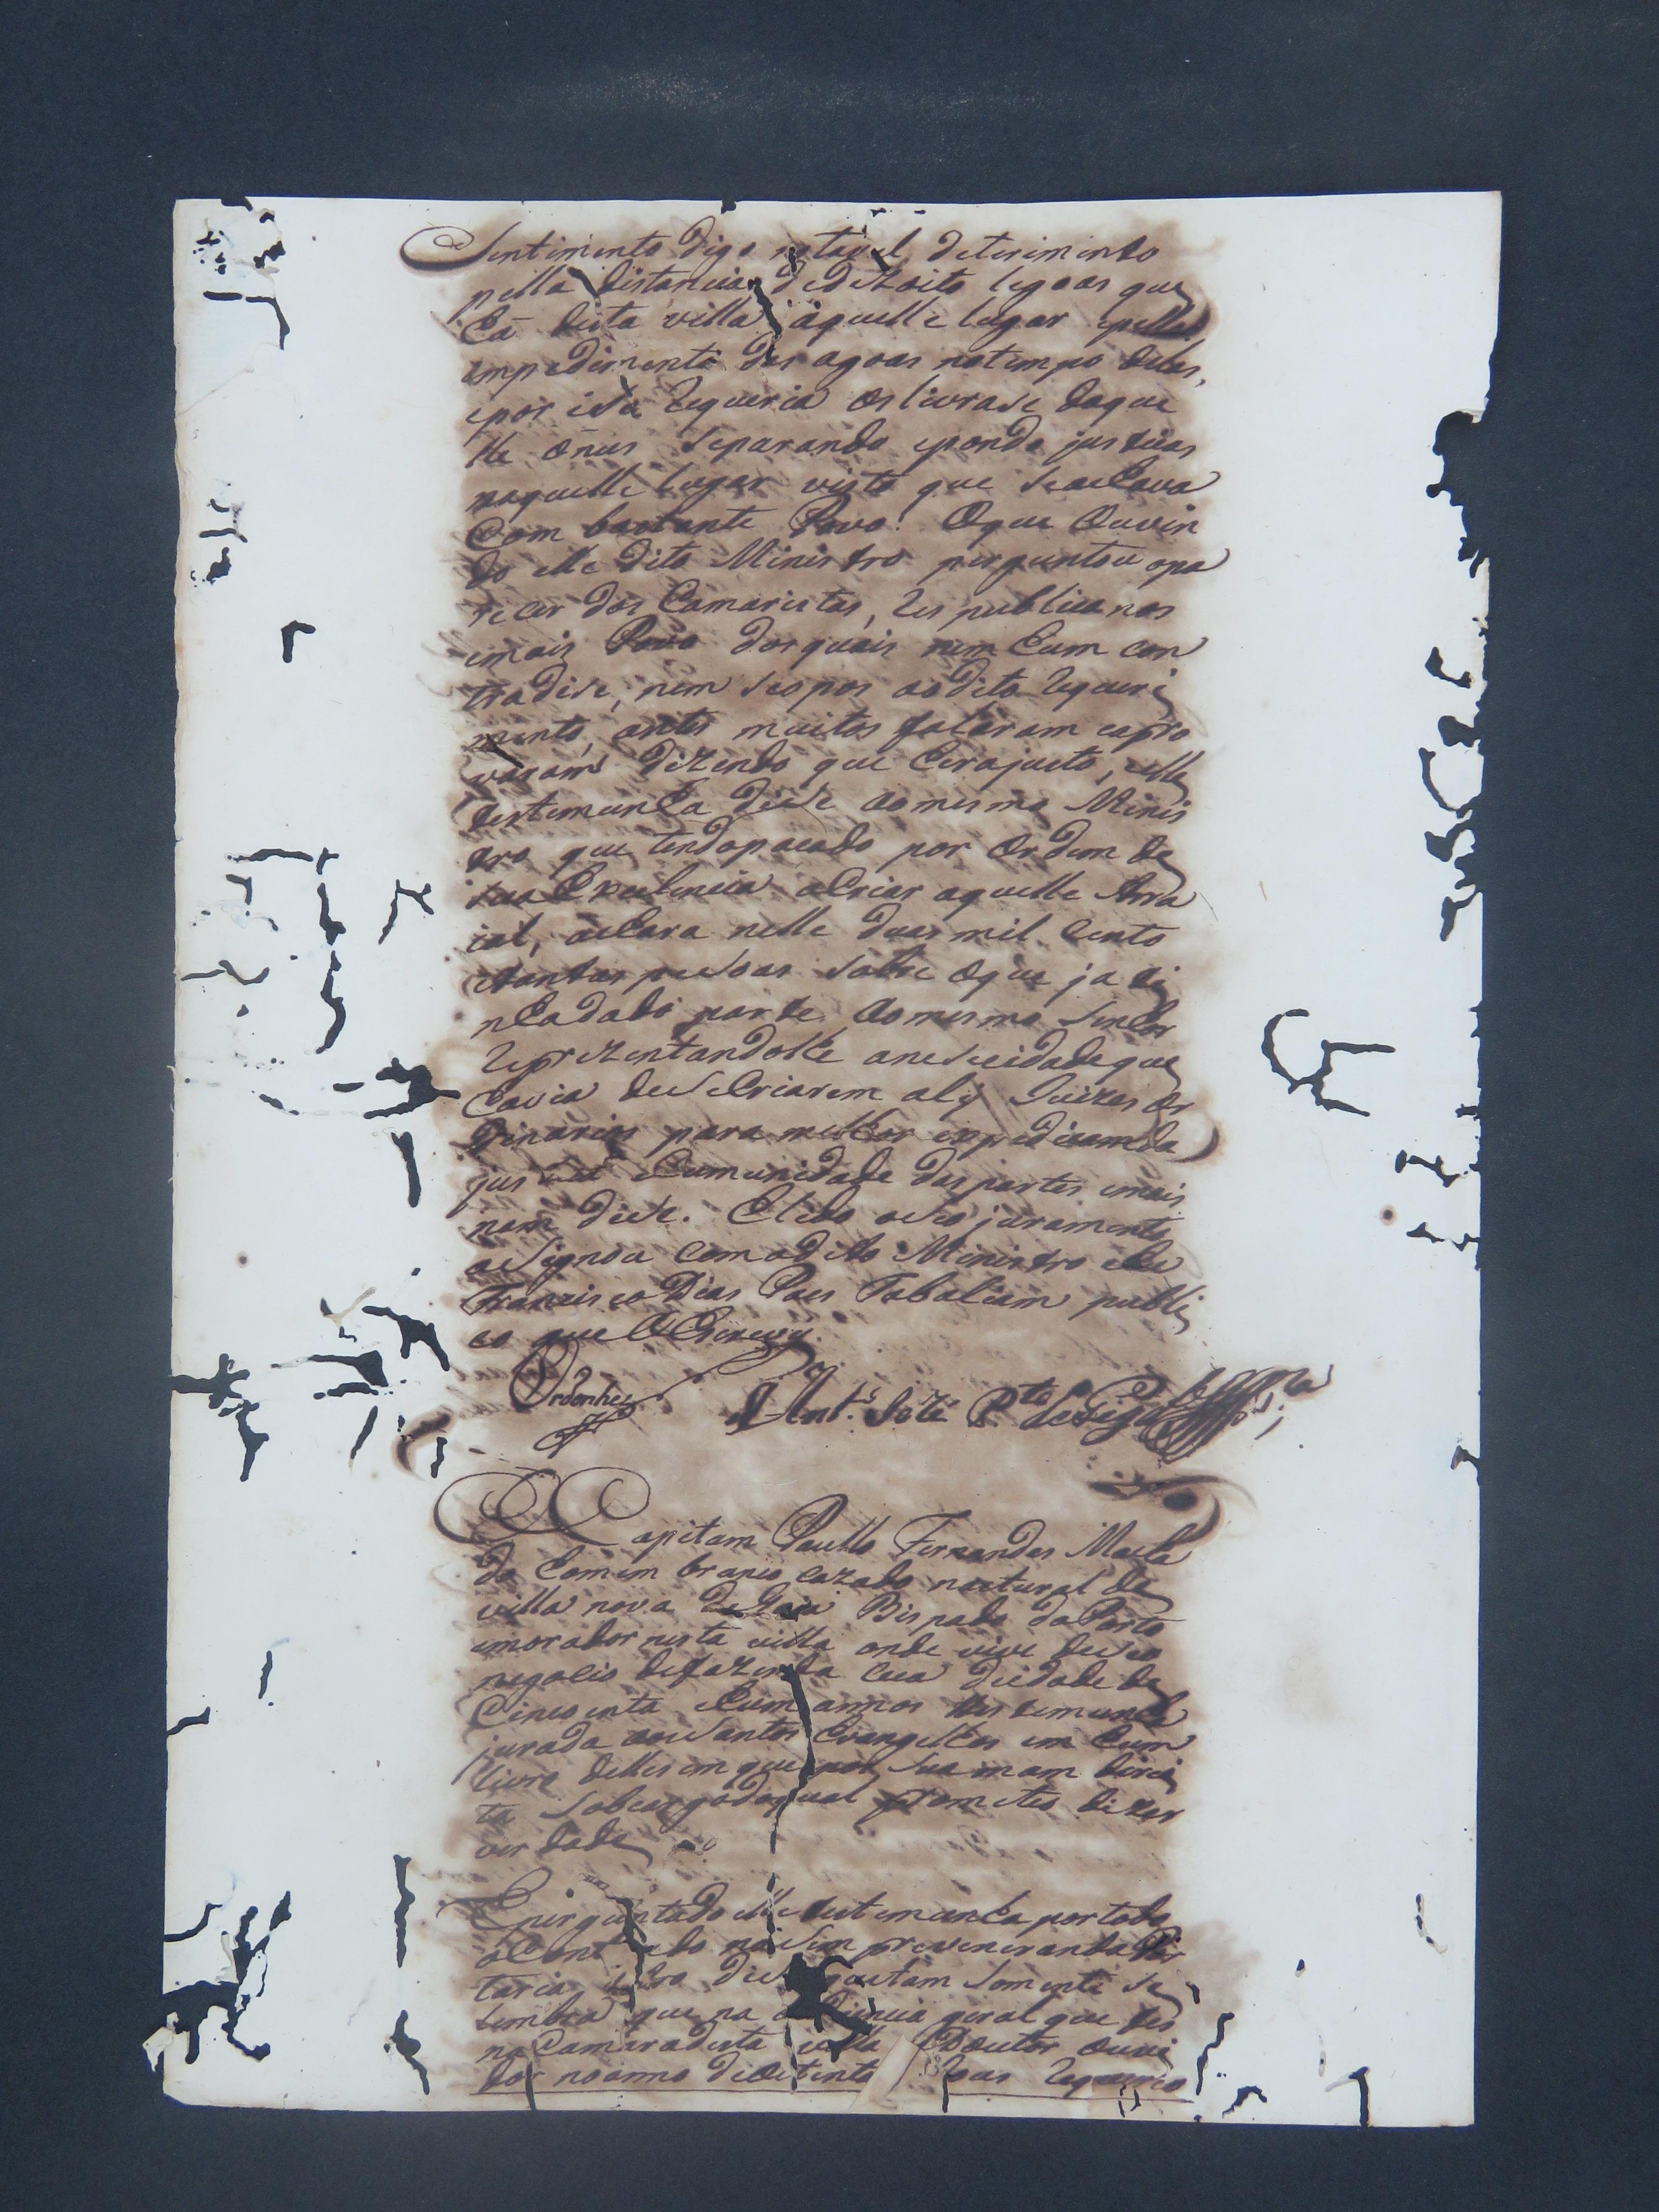 Sentimento digo notavel deterimento
pella distancia de dezoito legoas que
há desta villa áquelle lugar epello
empedimento das agoas notempo dellas,
epor iso Requeria os livrase daque
lle onus Separando epondo justisas
naquelle lugar visto que seachava
Com bastante Povo: Oque Ouvin
do elle dito Ministro perguntou opa
recer dos Camaristas, Republicanos
emais Povo dos quais nem hum con
tradise, nem seopos aodito Requeri
mento, antes muitos falaram eapro
varam dizendo que herajusto, eelle
testemunha dise aomesmo Minis
tro que tendopasado por Ordem de
sua Excelencia aCriar aquelle Arra
ial, achara nelle duas mil cento
etantas pesoas sobre oque ja ti
nhadado parte aomesmo Senhor
Reprezentandolhe anesecidadeque
havia deseCriarem aly Juizes Or
dinarios para milhor expedisamda
justisa eComunidade das partes emais
nam dise. Elido oseo juramento
asignou com odito Ministro eEu
Francisco Dias Paes Tabaliam publi
co que OEscrevy.
Ordonhes Ant.º Jozé P.to
Capitam Paullo Fernandes Macha
do homem branco cazado natural de
villa nova de Gaia Bispado do Porto
emorador nesta villa onde vive deseo
negocio defazenda seca deidade de
Cincoenta ehum annos testemunha
jurada aosSantos Evangelhos em hum
livro delles em que pos sua mam direi
ta Sobcargodoqual prometeo dizer
verdade
Eperguntado elle testemunha portodo
oConteudo naSempreveneranda Por
taria dise quetam somente se
lembra que na audiencia geral que fes
na Camaradesta villa oDoutor ouvi
dor noanno deOitenta Requereo